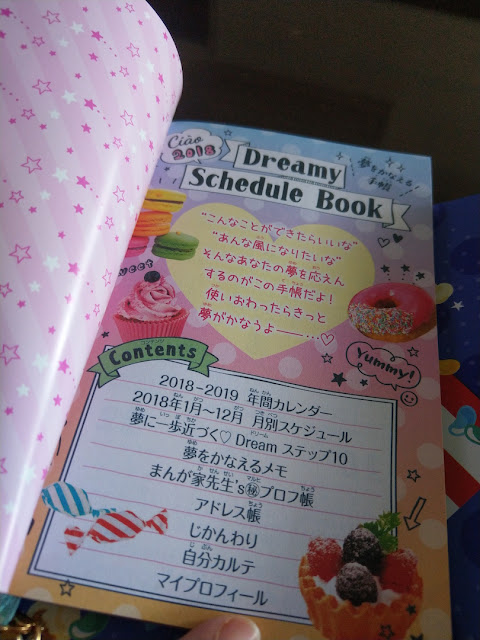 Ciao
2018
Dreamy
Schedule Book
夢をかなえる!
手帳
"こんなことができたらいいな"
"あんな風になりたいな"
そんなあなたの夢を応えん
するのがこの手帳だよ!
使いおわったらきっと
夢がかなうよ――…♡
sweet
Yummy!
Contents
2018-2019 年間カレンダー
2018年1月~12月 月別スケジュール
夢に一歩近づく♡ Dream ステップ10
夢をかなえるメモ
まんが家先生's㊙プロフ帳
アドレス帳
じかんわり
自分カルテ
マイプロフィール